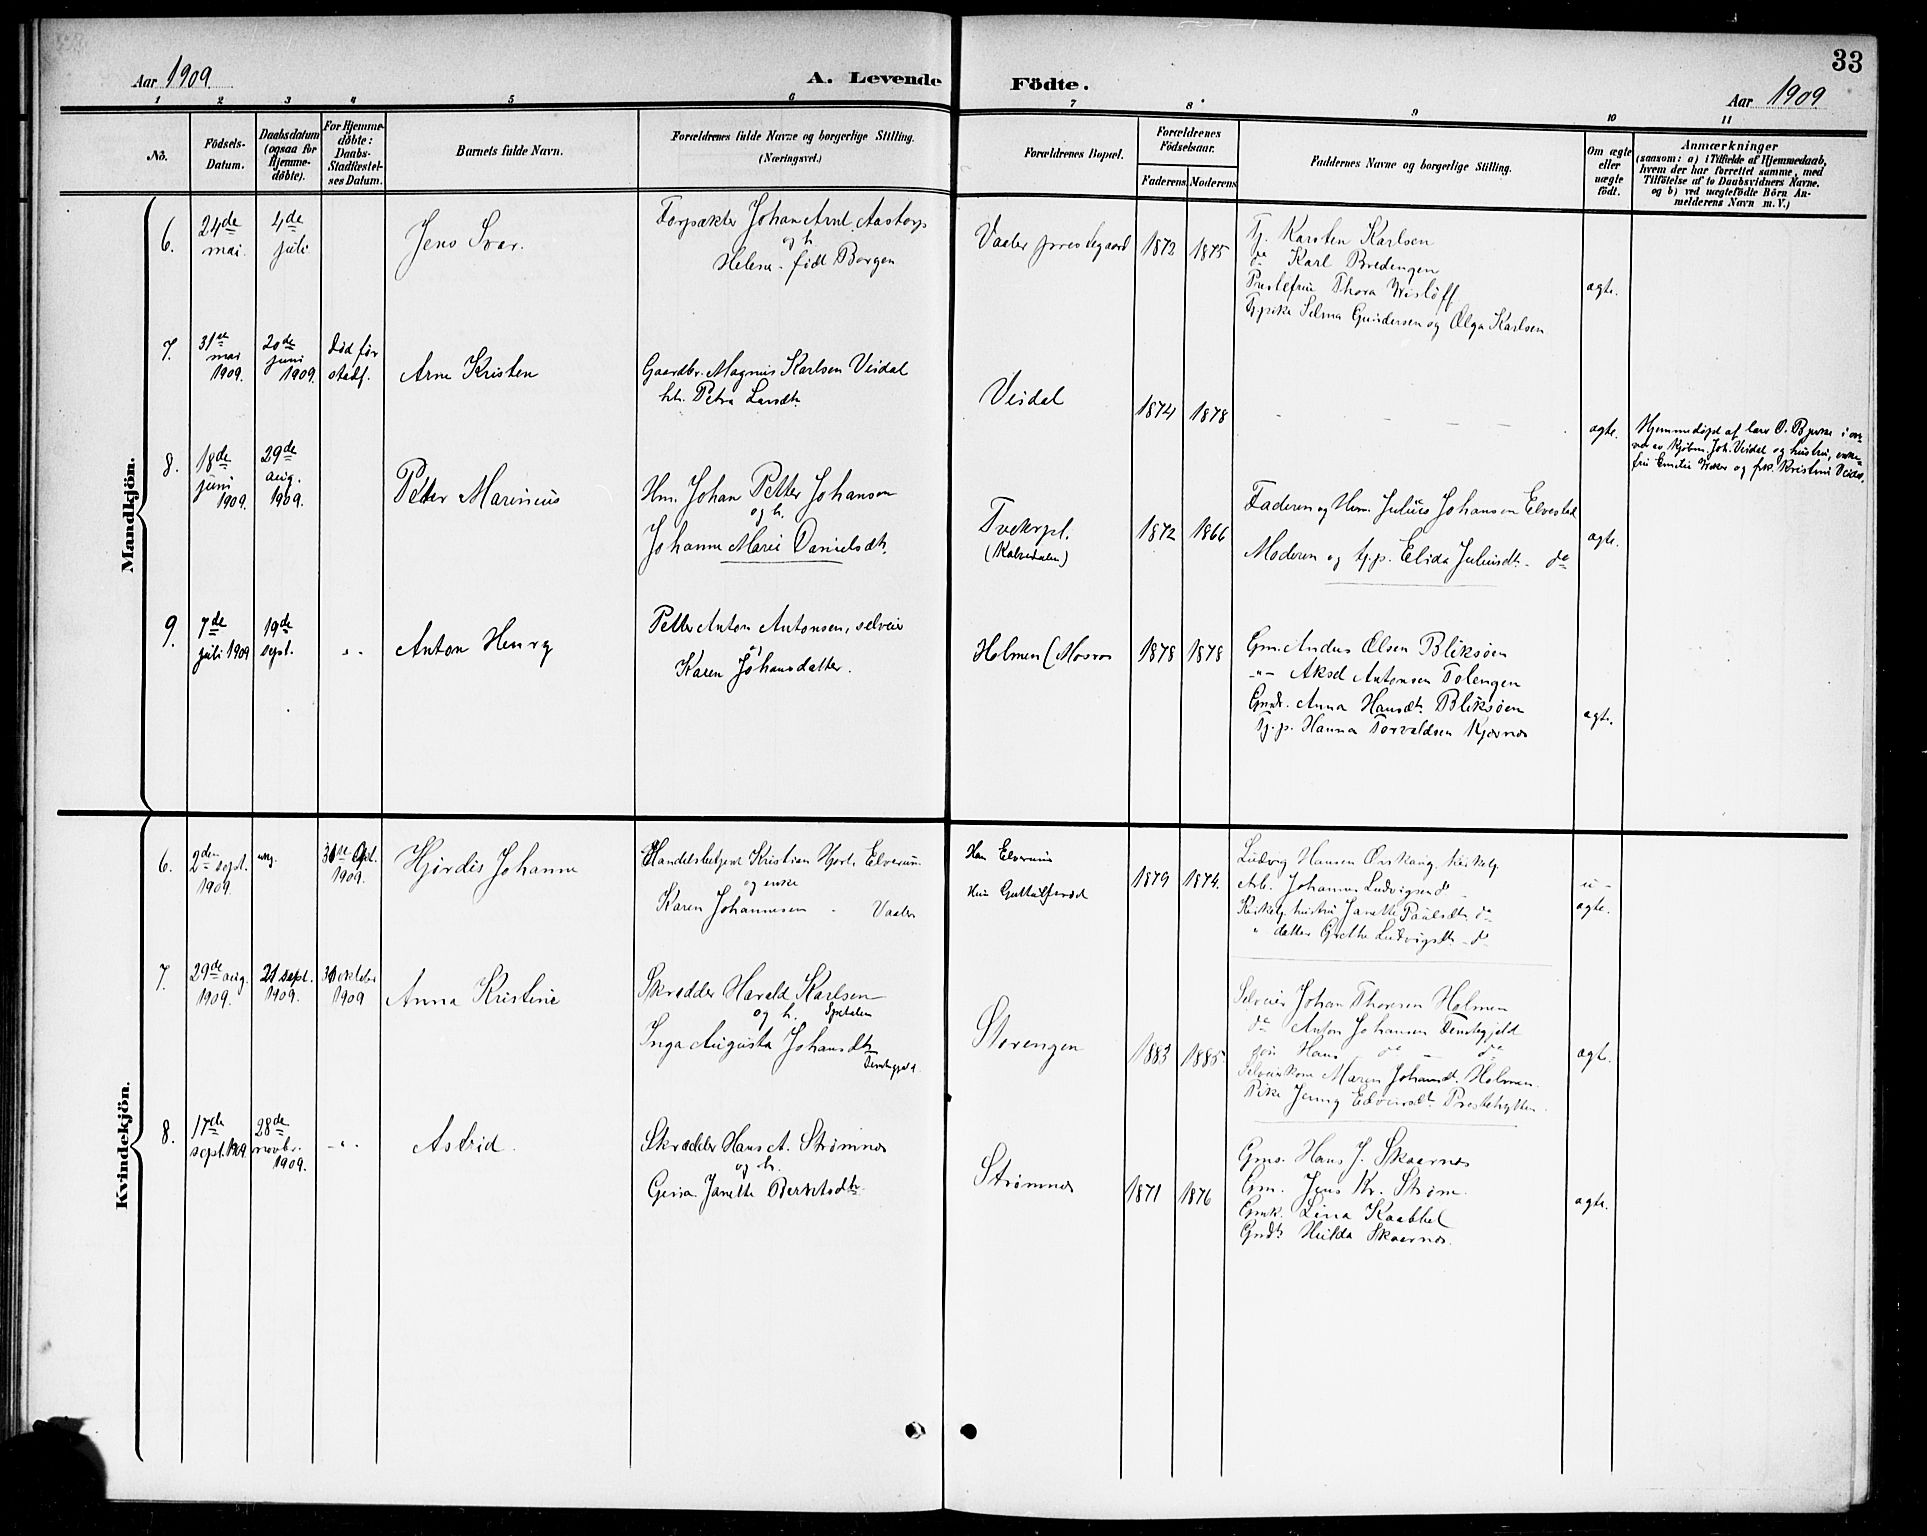 33
Aar 1909.
A. Levende Födte.
Aar 1909
1 2 3 4 5 6 7 8 9 10 11
No.
Födsels-Datum.
Daabsdatum (ogsaa for Hjemme-döbte).
For Hjemme-döbte: Daabs-Stadfæstel-ses Datum.
Barnets fulde Navn.
Forældrenes fulde Navne og borgerlige Stilling.
(Næringsvei.)
Forældrenes Bopæl.
Forældrenes Födselsaar.
Faderens Moderens
Faddernes Navne og borgerlige Stilling.
Om ægte eller uægte födt.
Anmærkninger
(saasom: a) i Tilfælde af Hjemmedaab,
hvem der har forrettet samme, med
Tilföielse af to Daabsvidners Navne.
og b) ved uægtefödte Börn An-
melderens Navn m. V.)
Mandkjön.
6.
24de mai.
4de juli
Jens Svar.
Forpakter Johan Arnt Aastorp
og h.
Helene - født Borgen
Vaaler prestegaard
1872 1875
Tj. Karsten Karlsen
do Karl Bredengen
Prestefrue Thora Wisløff
Tj.pike Selma Gundersen og Olga Karlsen
ægte.
7.
31te mai 1909.
20de juni 1909.
død før stadf.
Arne Kristen
Gaardbr. Magnus Karlsen Veidal
h. Petra Larsdt.
Veidal
1874 1878
- - - -
ægte.
Hjemmedøpt af lærer O. Bjerke i
Kjøbm. Joh. Veidal og hustru,
fru Emilie og frk. Kristine Veidal.
8.
18de juni 1909.
29de aug. 1909.
Petter Marinius
Hm. Johan Petter Johansen
og h.
Johanne Marie Danielsdt.
Tveterpl.
(Kalvedalen)
1872 1866
Faderen og Hm. Julius Johansen Elvestad
Moderen og tj.p. Elida Juliusdt. - do
ægte.
9.
7de juli 1909
19de sept.
- " -
Anton Henry
Petter Anton Antonsen, selveier
Karen Johansdatter.
Holmen (Mosros
1878 1878
Gm. Anders Olsen Bliksøen
- " - Aksel Antonsen Tolengen
Gmdt. Anna Hansdt. Bliksøen
Tj.p. Hanna Torvaldsen Kjærnes
ægte.
Kvindekjön.
6.
2den sept. 1909.
31te 1909.
Hjørdis Johanne
Handelsbetjent Kristian Hjort Elverum
og enke
Karen Johannesen - Vaaler
Han Elverum
Hun Guttulfsrød
1879 1874.
Ludvig Hansen Ørskaug, kirketj.
Arb. Johannes Ludvigsen do -
Kirketj. hustru Janette Paulsdt. do
" datter Grethe Ludvigsdt. - do
u -
ægte.
7.
29de aug. 1909.
21 sept. 1909.
31 oktober 1909
Anna Kristine
Skrædder Harald Karlsen
og h. Spetalen
Inga Augusta Johansdt.
Storengen
1883 1885.
Selveier Johan Thoresen Holmen
do Anton Johansen
Hans do - do
Selveierkone Maren Johansdt. Holmen.
Pike Jenny Edvinsdt. Prestehytten.
ægte.
8.
17de sept. 1909.
28de novbr. 1909.
- " -
Astrid.
Skrædder Hans A. Strømnes
og h.
Gina Janette Berntsdt.
Strømnes
1871 1876
Gms. Hans J. Skaarnes
Gm. Jens Kr. Strøm.
Gmk. Lina Kaabbel
Gmdt. Hulda Skaarnes.
ægte.